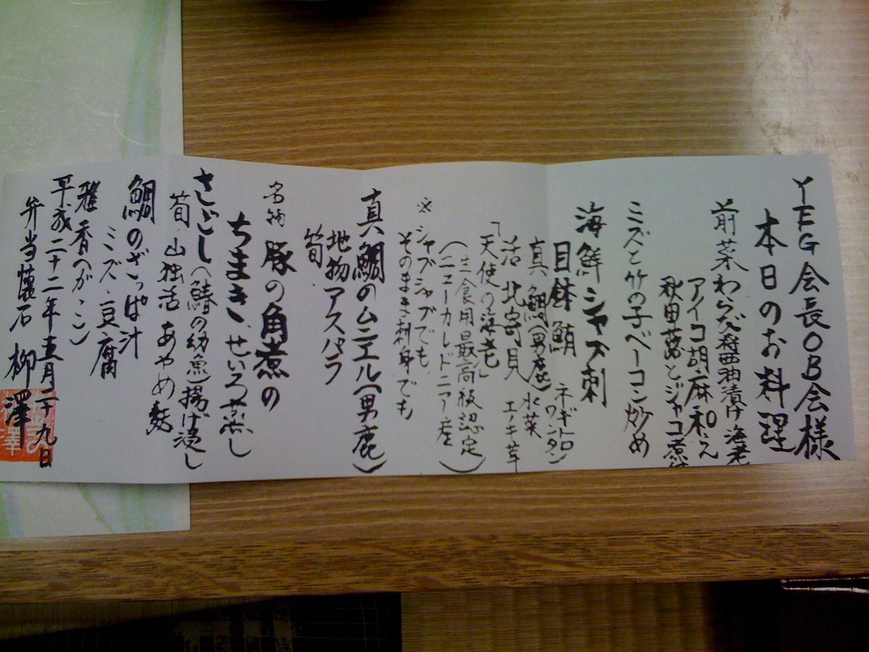 YEG会長OB会様
本日のお料理
前菜 わらび 醤油漬け 海老
アイコ胡麻和え
秋田蕗とジャコ煮付
ミズと竹の子ベーコン炒め
海鮮シャブ刺
目鉢鮪 ネギトロ
ワンタン
真鯛(男鹿) 水菜
活 北寄貝 エノキ茸
「天使の海老」
(生食用最高級認定)
(ニューカレドニア産)
※シャブシャブでも、
そのまま刺身でも
真鯛のムニエル(男鹿)
地物アスパラ
筍
名物 豚の角煮の
ちまき せいろ蒸し
さごし(鰆の幼魚)揚げ浸し
筍 山独活 あやめ麩
鯛のざっぱ汁
ミズ・豆腐
雅香(がっこ)
平成二十二年五月二十九日
弁当懐石 柳澤